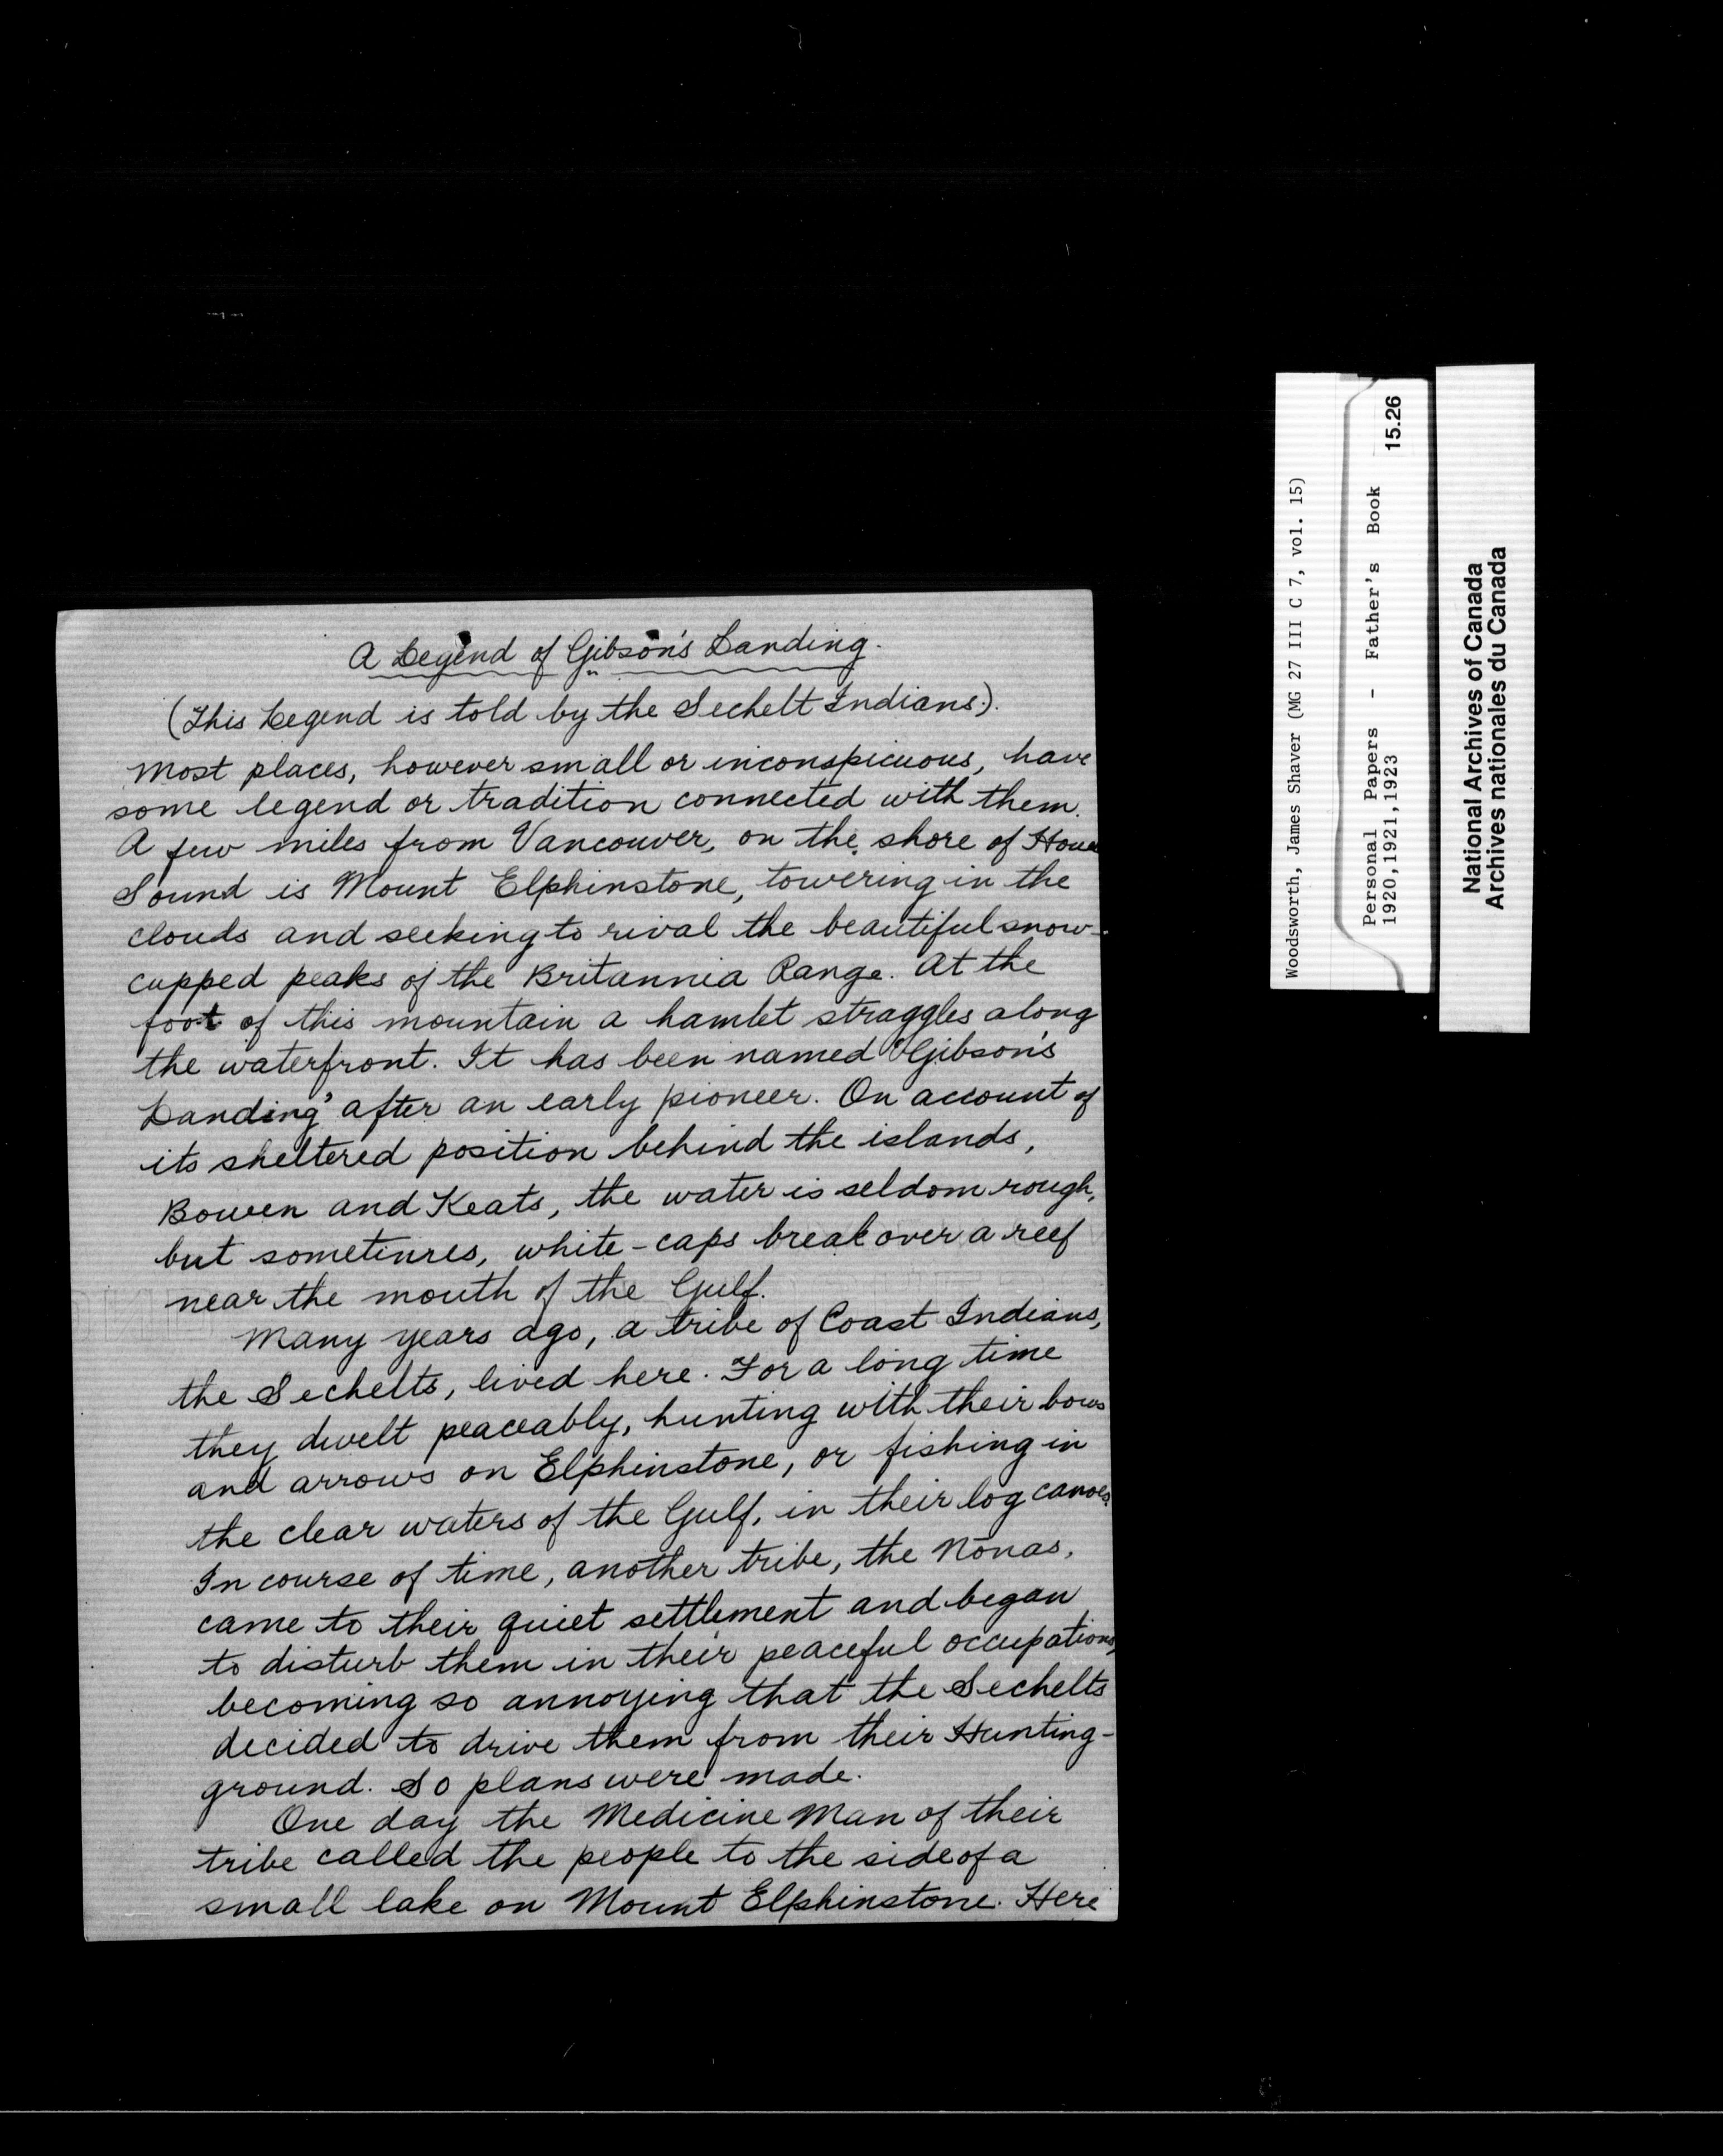 A Legend of Gibson's Landing.
(This Legend is told by the Sechelt Indians).
Most places, however small or inconspicuous, have
some legend or tradition connected with them.
A few miles from Vancouver, on the shore of Howe
Sound is Mount Elphinstone, towering in the
clouds and seeking to rival the beautiful snow-
capped peaks of the Britannia Range. At the
foot of this mountain a hamlet straggles along
the waterfront. It has been named 'Gibson's
Landing' after an early pioneer. On account of
its sheltered position behind the islands,
Bowen and Keats, the water is seldom rough,
but sometimes, white-caps break over a reef
near the mouth of the Gulf.
Many years ago, a tribe of Coast Indians,
the Sechelts, lived here. For a long time
they dwelt peaceably, hunting with their bows
and arrows on Elphinstone, or fishing in
the clear waters of the Gulf, in their log canoes.
In course of time, another tribe, the Nonas,
came to their quiet settlement and began
to disturb them in their peaceful occupations,
becoming so annoying that the Sechelts
decided to drive them from their Hunting-
ground. So plans were made.
One day the Medicine Man of their
tribe called the people to the side of a
small lake on Mount Elphinstone. Here
Woodsworth, James Shaver (MG 27 III C 7, vol. 15)
Personal Papers - Father's Book 15.26
1920,1921,1923
National Archives of Canada
Archives nationales du Canada